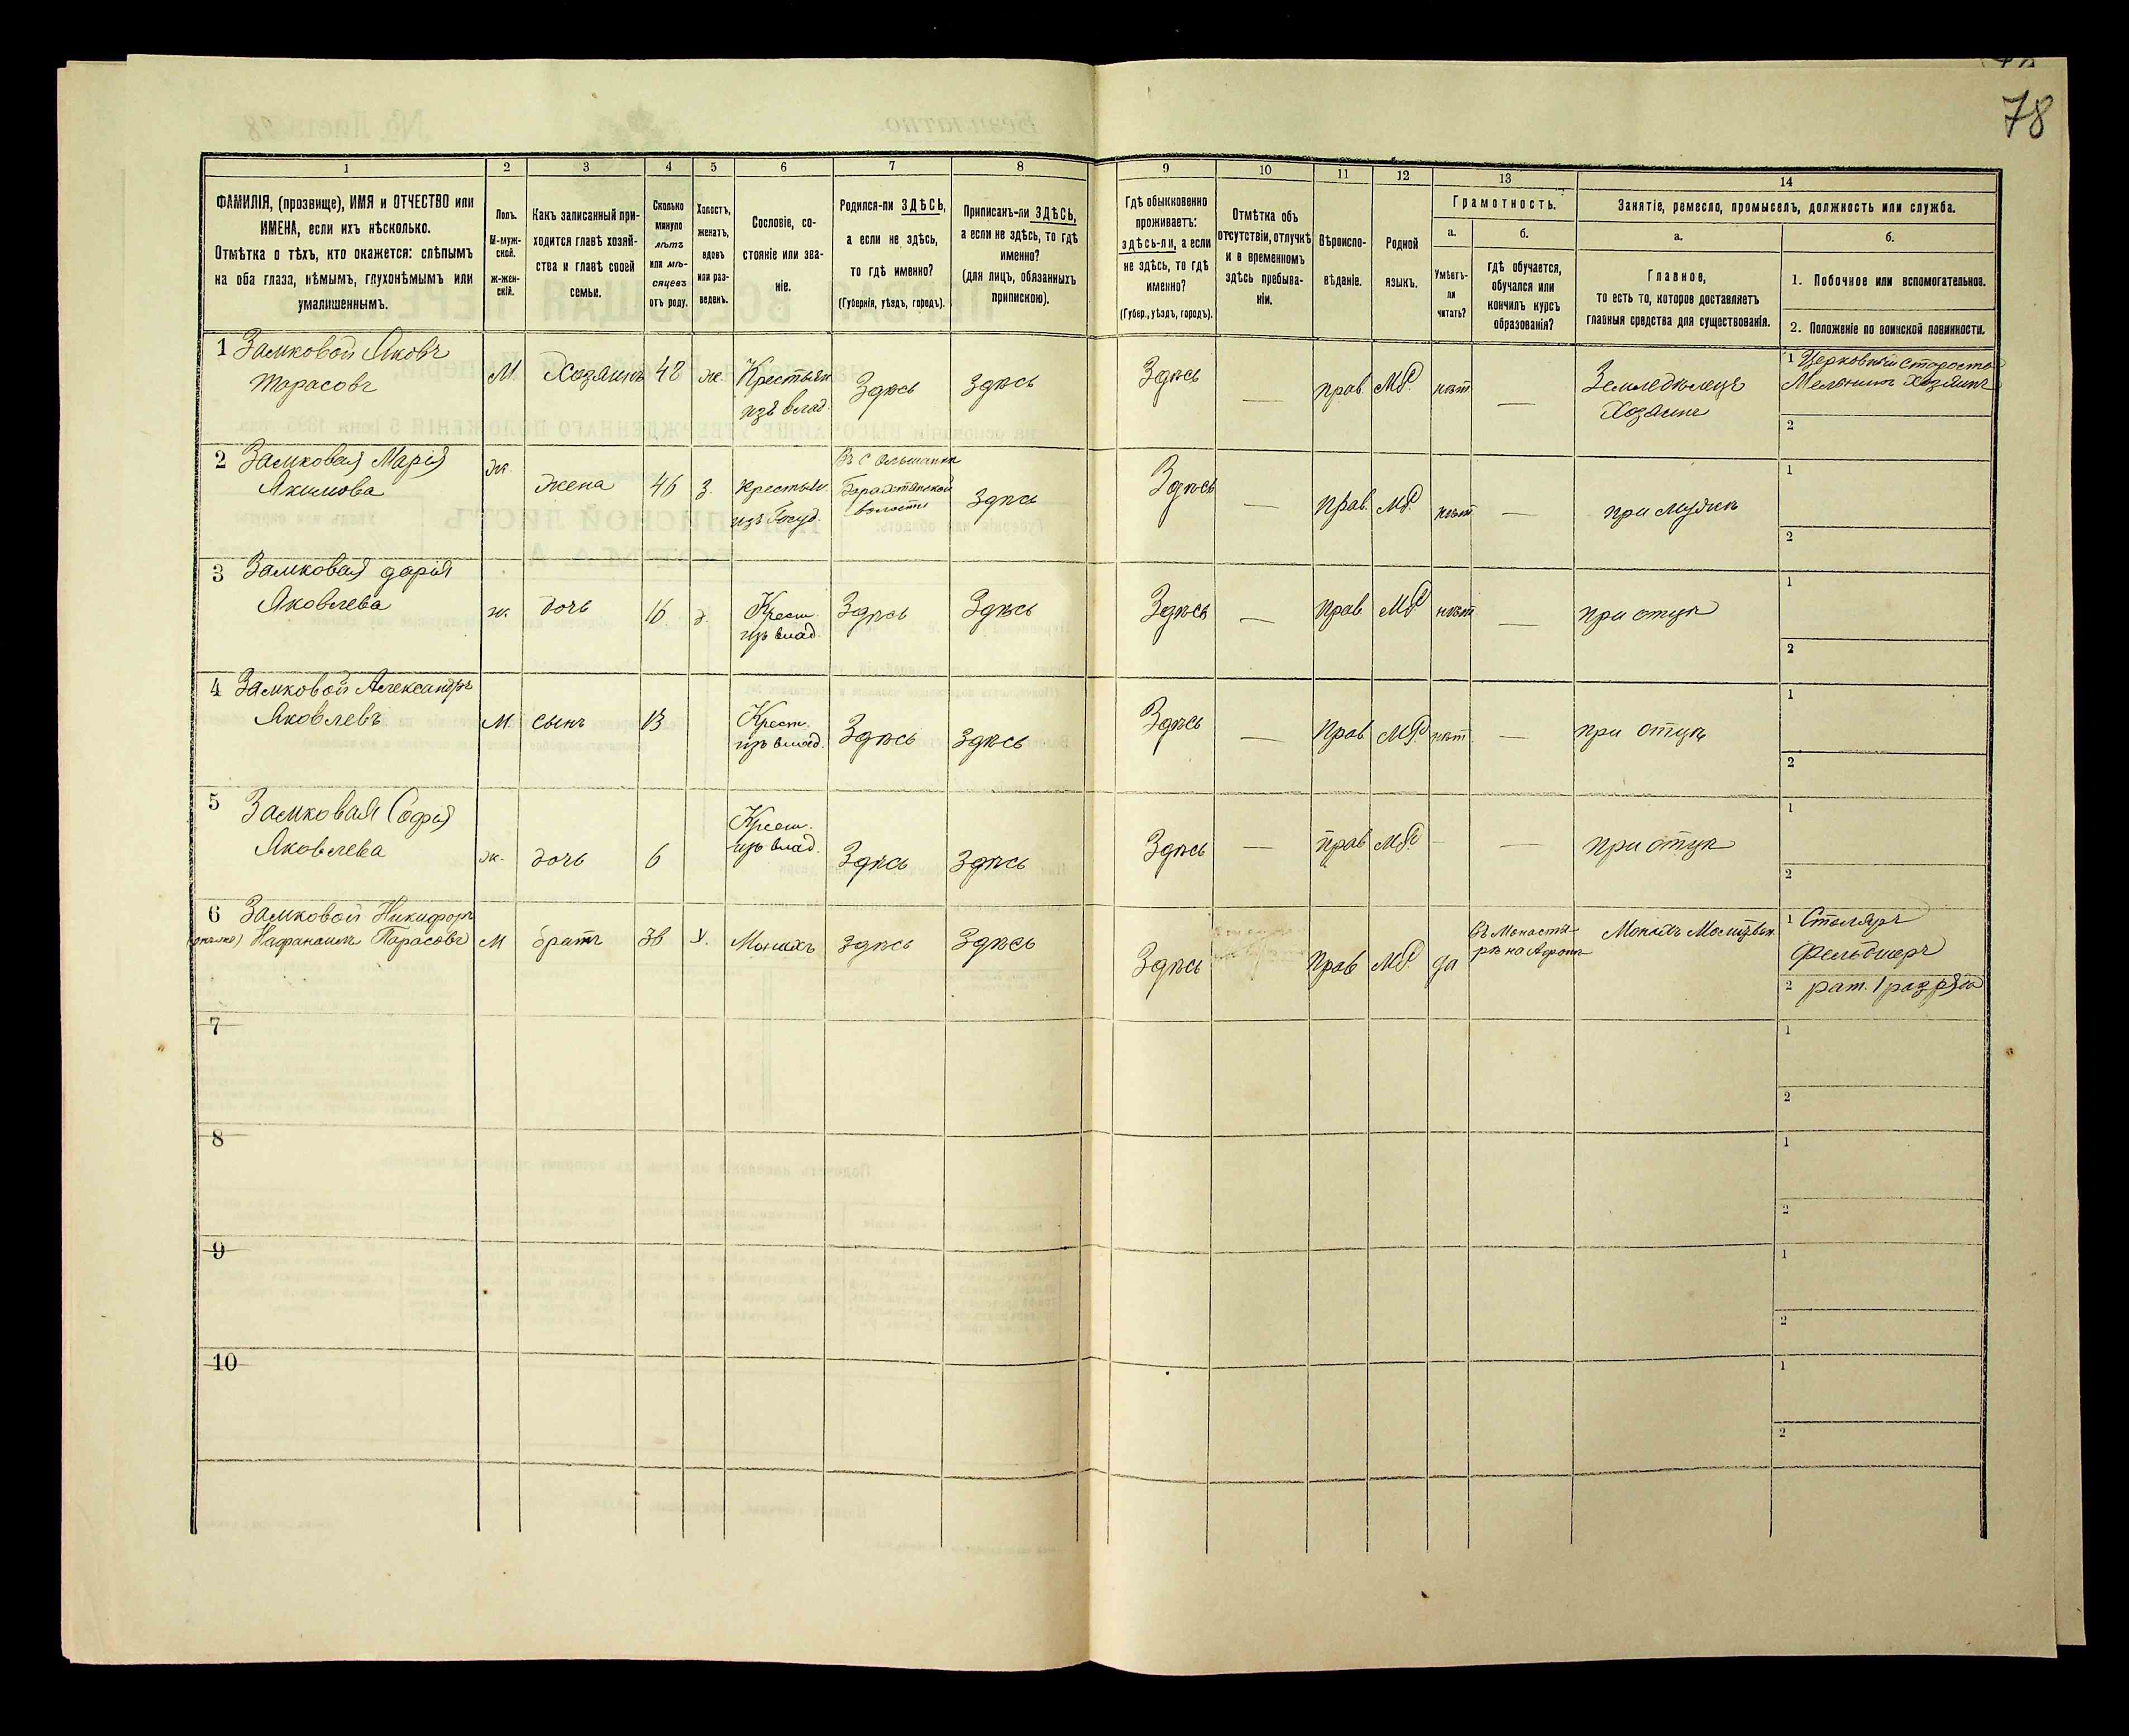 78
1 2 3 4 5 6 7 8 9 10 11 12 13 14
ФАМИЛІЯ, (прозвище), ИМЯ и ОТЧЕСТВО или
ИМЕНА, если ихъ нѣсколько.
Отмѣтка о тѣхъ, кто окажется: слѣпымъ
на оба глаза, нѣмымъ, глухонѣмымъ или
умалишеннымъ.
Полъ.
М-муж-
ской.
ж-жен-
скій.
Какъ записанный при-
ходится главѣ хозяй-
ства и главѣ своей
семьи.
Сколько
минуло
лѣтъ
или мѣ-
сяцевъ
отъ роду.
Холостъ,
женатъ,
вдовъ
или раз-
веденъ.
Сословіе, со-
стояніе или зва-
ніе.
Родился-ли ЗДѢСЬ,
а если не здѣсь,
то гдѣ именно?
(Губернія, уѣздъ, городъ).
Приписанъ-ли ЗДѢСЬ,
а если не здѣсь, то гдѣ
именно?
(для лицъ, обязанныхъ
припискою).
Гдѣ обыкновенно
проживаетъ:
здѣсь-ли, а если
не здѣсь, то гдѣ
именно?
(Губер., уѣздъ, городъ).
Отмѣтка объ
отсутствіи, отлучкѣ
и о временномъ
здѣсь пребыва-
ніи.
Вѣроиспо-
вѣданіе.
Родной
языкъ.
Грамотность.
а.
Умѣетъ-
ли
читать?
б.
гдѣ обучается,
обучался или
кончилъ курсъ
образованія?
Занятіе, ремесло, промыселъ, должность или служба.
а.
Главное,
то есть то, которое доставляетъ
главныя средства для существованія.
б.
1. Побочное или вспомогательное.
2. Положеніе по воинской повинности.
1 Замковой Яковъ
Тарасовъ
М Хозяинъ 48 ж Крестьян
изъ влад. Здѣсь Здѣсь Здѣсь — прав. МР. нѣт —
Земледѣлецъ
Хозяинъ
1 Церковный староста
Мельникъ Хозяинъ
2
2 Замковая Марія
Якимова
ж. жена 46 з. крестьян.
изъ Госуд.
Въ с Ольшанки
волости
Здѣсь Здѣсь — прав. МР. нѣт — при мужѣ
1
2
3 Замковая Дарія
Яковлева
ж. дочь 16. д. Крест.
изъ влад. Здѣсь Здѣсь Здѣсь — прав МР нѣт — при отцѣ
1
2
4 Замковой Александръ
Яковлевъ
М. сынъ 13 Крест.
изъ влад. Здѣсь Здѣсь Здѣсь — прав МР. нѣт — при отцѣ
1
2
5 Замковая Софія
Яковлева
ж. дочь 6 Крест.
изъ влад. Здѣсь Здѣсь Здѣсь — прав МР. — — при отцѣ
1
2
6 Замковой Никифоръ
Нафанаилъ Тарасовъ
М братъ 38 х. Монахъ Здѣсь Здѣсь Здѣсь прав МР. да
Въ Монасты-
рѣ на Афонѣ
Монахъ
1 Столяръ
Фельдшеръ
2 рат. 1 разряда
7
1
2
8
1
2
9
1
2
10
1
2